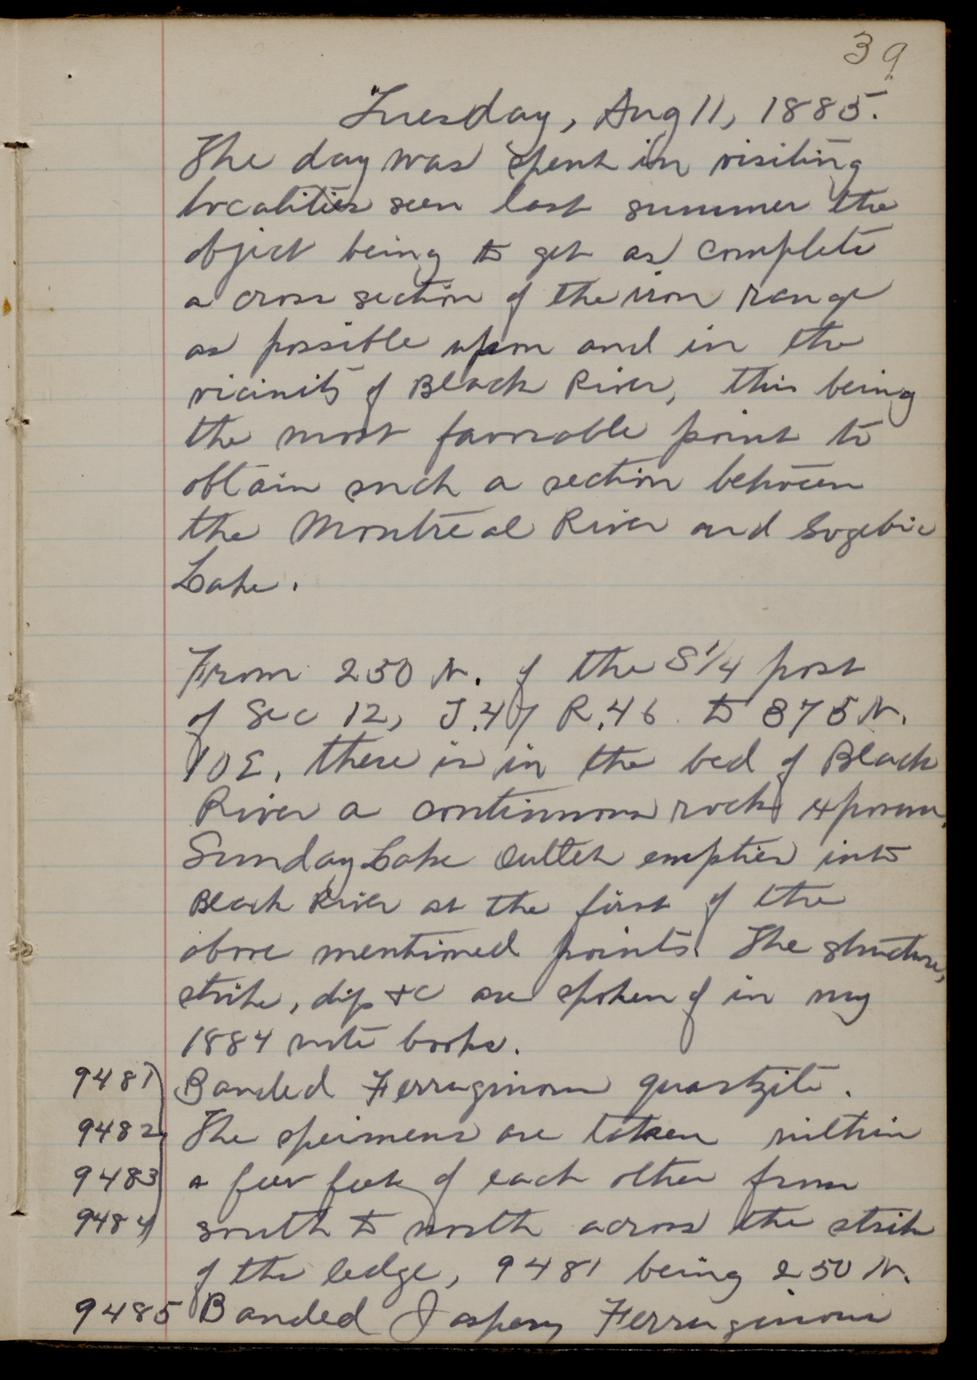 39
Tuesday, Aug 11, 1885.
The day was spent in visiting
localities seen last summer the
object being to get as complete
a cross section of the iron range
as possible upon and in the
vicinity of Black River, this being
the most favorable point to
obtain such a section between
the Montreal River and Gogebic
Lake.
From 250 N. of the S 1/4 post
of Sec 12, T.47 R.46 to 875 N.
10 E, there is in the bed of Black
River a continuous rock exposure.
Sunday Lake Outlet empties into
Black River at the first of the
above mentioned points. The structure,
strike, dip &c are spoken of in my
1884 note books.
9481 Banded Ferruginous quartzite.
9482 The speimens are taken within
9483 a few feet of each other from
9484 south to north across the strike
of the ledge, 9481 being 250 N.
9485 Banded Jaspery Ferruginous